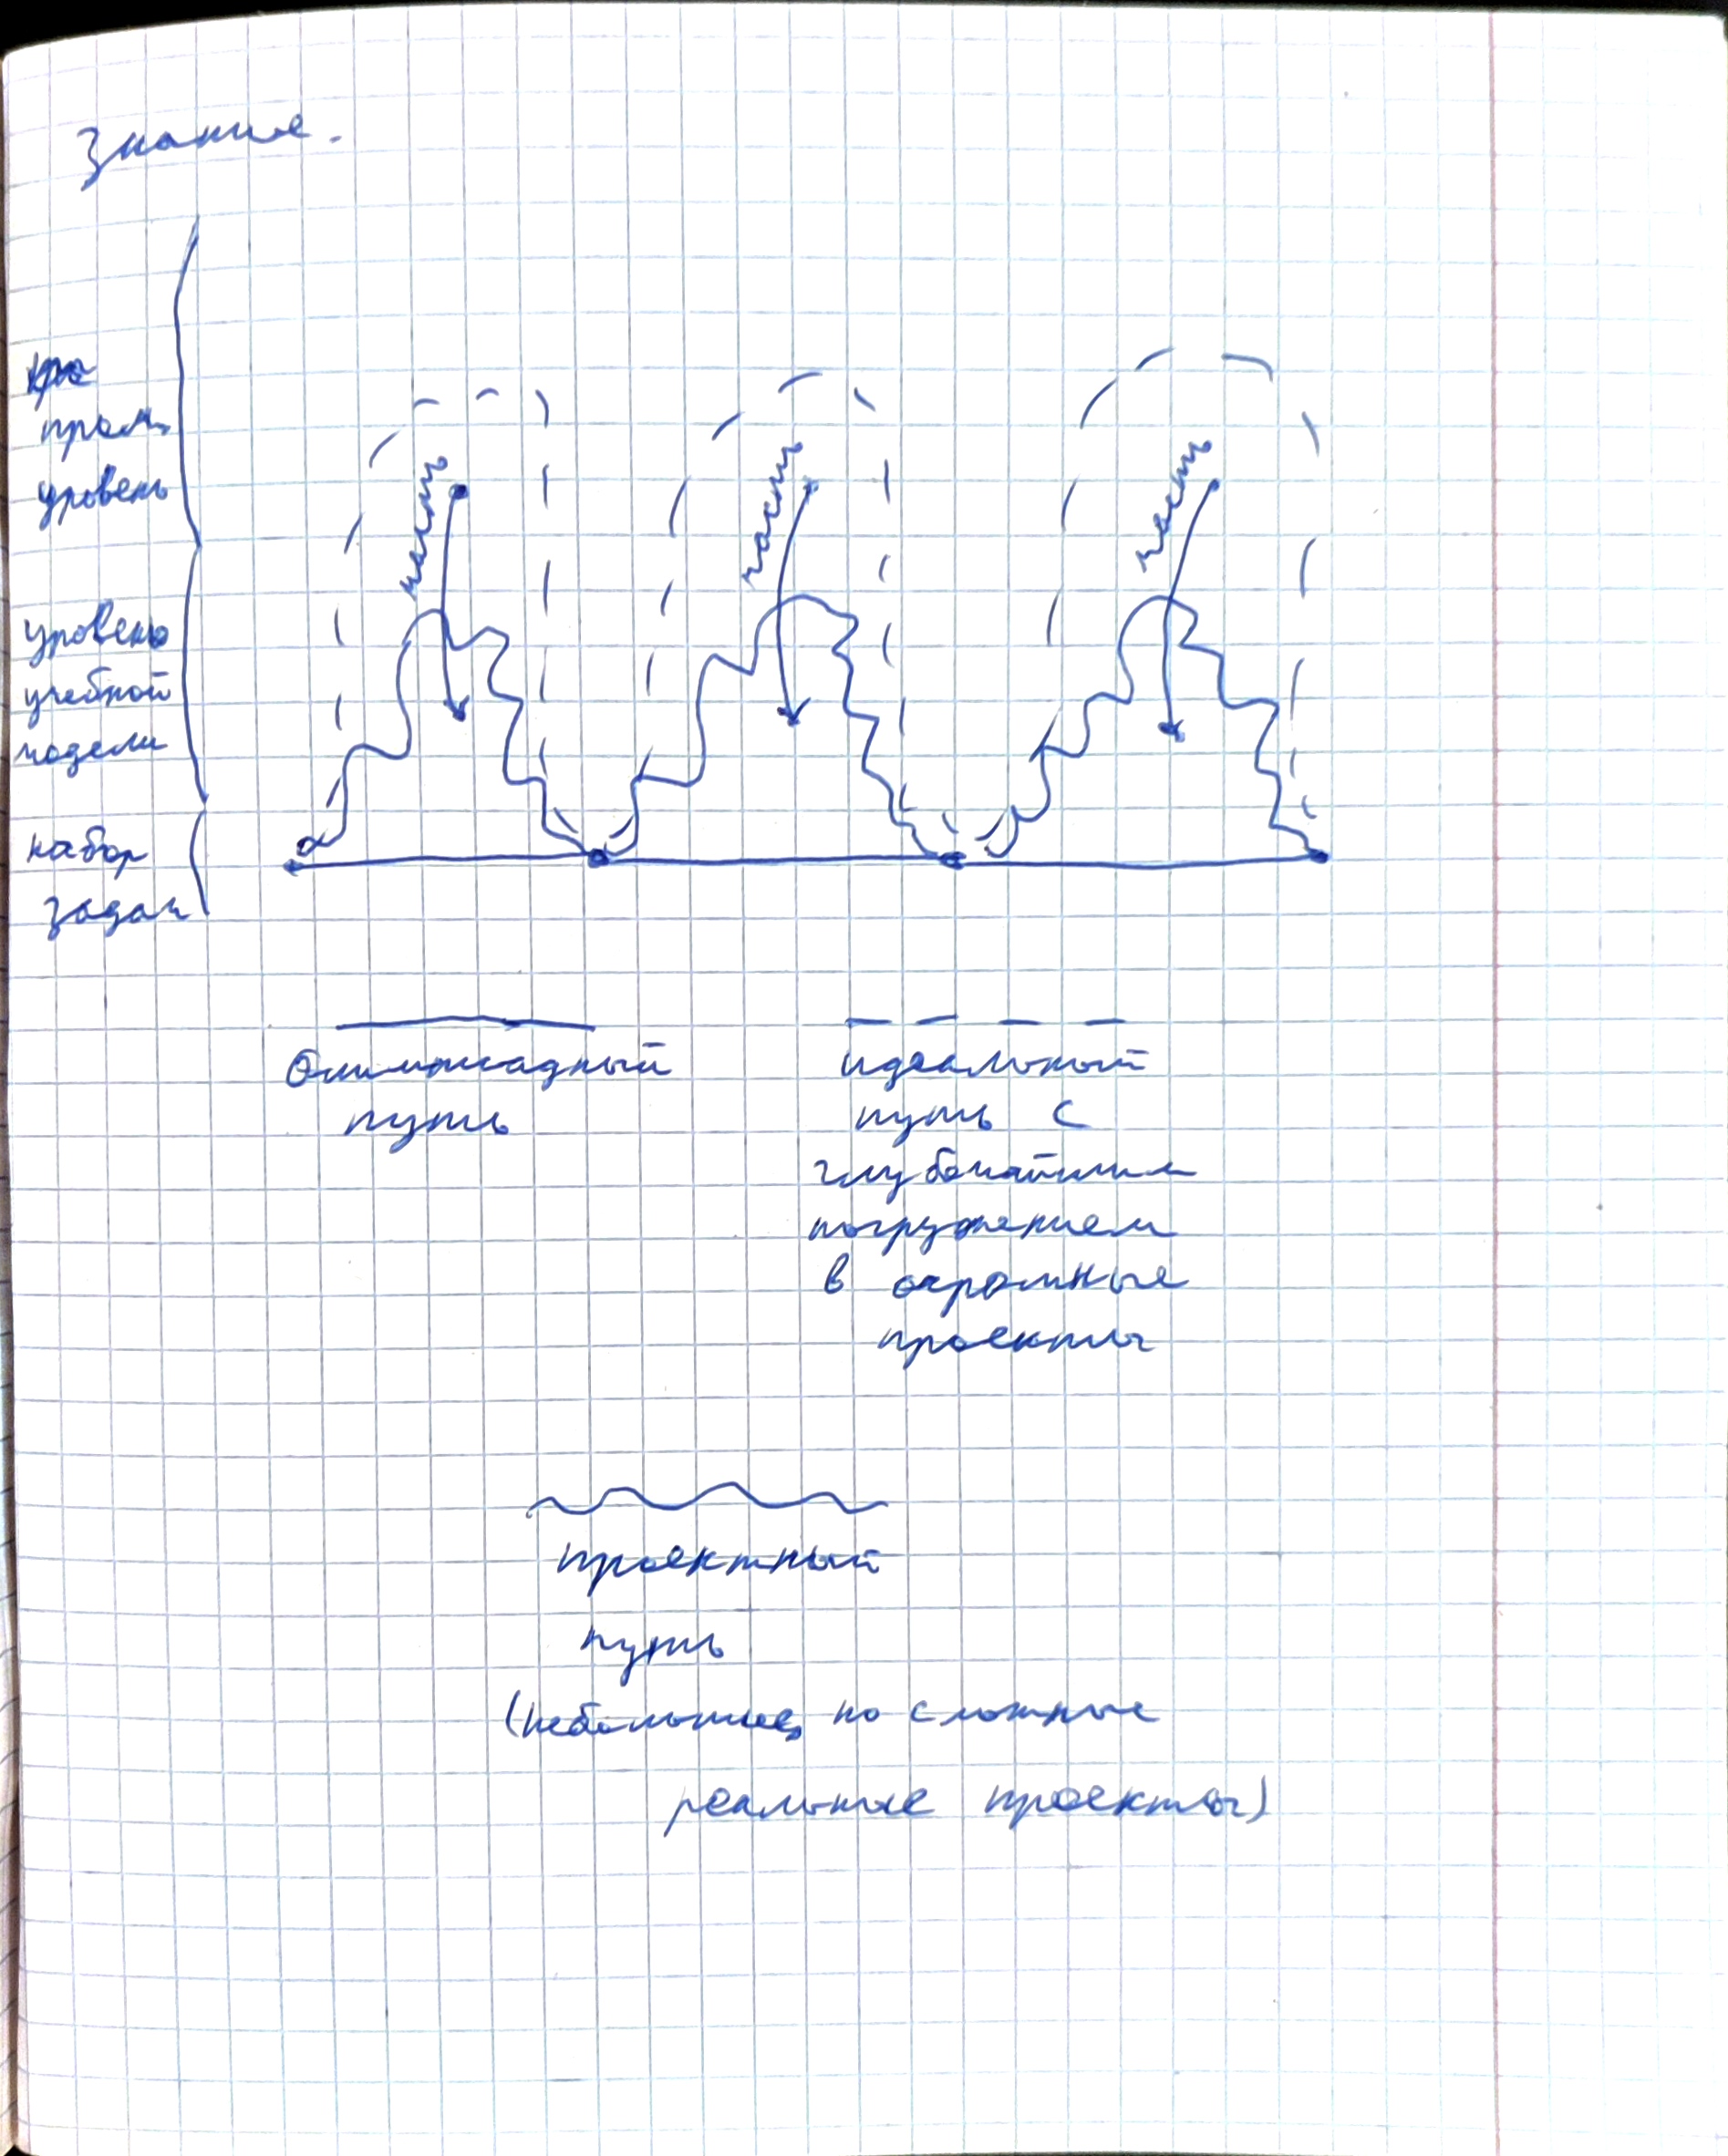 Знание.
пром.
уровень
уровень
учебной
модели
набор
задач
часть
часть
часть
Олимпиадный
путь
идеальный
путь с
глубочайшим
погружением
в огромные
проекты
проектный
путь
(небольшие, но сложные
реальные проекты)